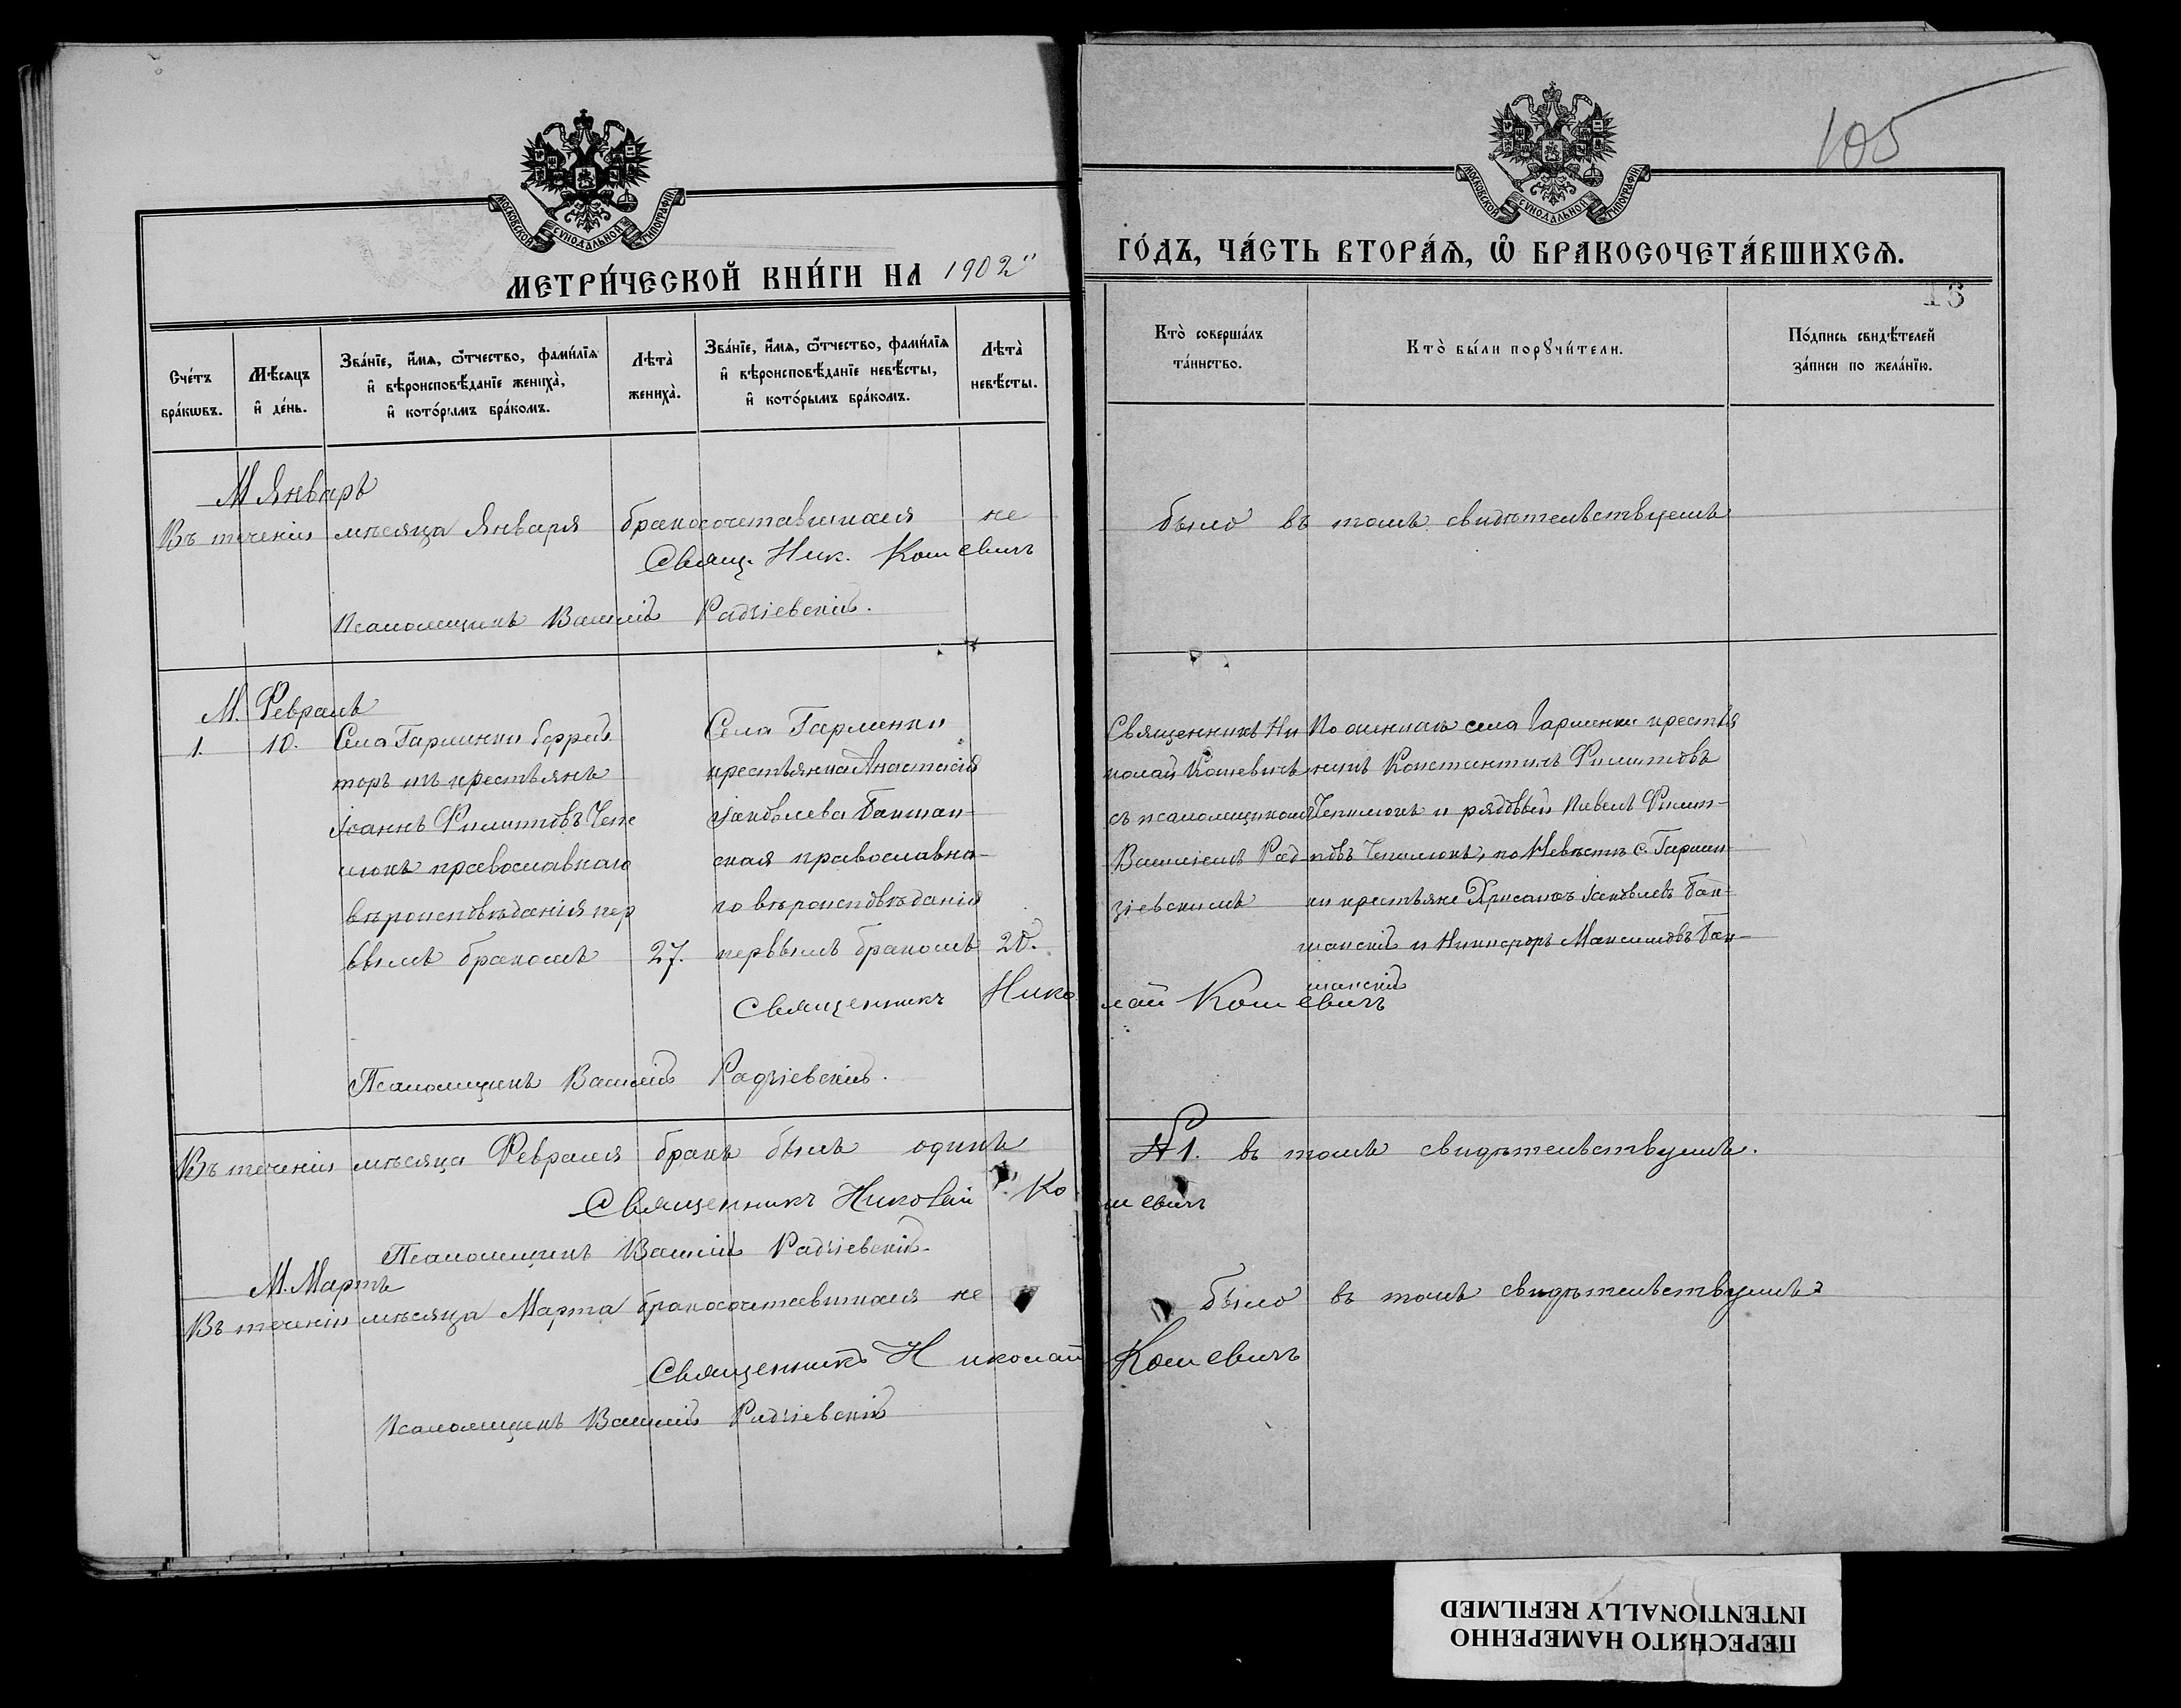 105
МОСКОВСКОЙ СУНОДАЛЬНОЙ ТИПОГРАФІИ
МОСКОВСКОЙ СУНОДАЛЬНОЙ ТИПОГРАФІИ
МЕТРИ́ЧЕСКОЙ КНИ́ГИ НА 1902
ГО́ДЪ, ЧА́СТЬ ВТОРА́Я, Ѡ҆ БРАКОСОЧЕТА́ВШИХСѦ.
13
Сче́тъ бра́кѡвъ.
Мѣ́сяцъ и҆ де́нь.
Зва́нїе, и҆́мѧ, ѻ҆́тчество, фами́лїѧ и҆ вѣроисповѣ́данїе жениха̀, и҆ кото́рымъ бра́комъ.
Лѣта̀ жениха̀.
Зва́нїе, и҆́мѧ, ѻ҆́тчество, фами́лїѧ и҆ вѣроисповѣ́данїе невѣ́сты, и҆ кото́рымъ бра́комъ.
Лѣта̀ невѣ́сты.
Кто̀ соверша́лъ та́инство.
Кто̀ бы́ли порꙋчи́тели.
По́дпись свидѣ́телей за́писи по жела́нїю.
М Январь
Въ теченіи мѣсяца Января бракосочетавшихся не было въ томъ свидѣтельствуемъ
Свящ. Ник. Кошевичъ
Псаломщикъ Василій Радзіевскій.
М. Февраль
1. 10.
Села Гармики
изъ крестьянъ
Іоаннъ Филипповъ Чепе
люкъ православнаго
вѣроисповѣданія пер
вымъ бракомъ
27.
Села Гарминки
крестьянка Анастасія
Іаковлева Бакшан-
ская православна-
го вѣроисповѣданія
первымъ бракомъ
20.
Священникъ Ни
колай Кошевичъ
съ псаломщикомъ
Василіемъ Рад
зіевскимъ
По женихѣ села Гарминки крестья
нинъ Константинъ Филипповъ
Чепелюкъ и рядовый Павелъ Филип-
повъ Чепелюкъ, по Невѣстѣ с. Гармин-
ки крестьяне Хрисанѳъ Іаковлевъ Бак-
шанскій и Никифоръ Максимовъ Бак-
шанскій
Священникъ Николай Кошевичъ
Псаломщикъ Василій Радзіевскій.
Въ теченіи мѣсяца Февраля бракъ былъ одинъ № 1. въ томъ свидѣтельствуемъ.
Священникъ Николай Кошевичъ
Псаломщикъ Василій Радзіевскій.
М. Мартъ
Въ теченіи мѣсяца Марта бракосочетавшихся не было въ томъ свидѣтельствуемъ
Священникъ Николай Кошевичъ
Псаломщикъ Василій Радзіевскій
ПЕРЕСНЯТО НАМЕРЕННО
INTENTIONALLY REFILMED